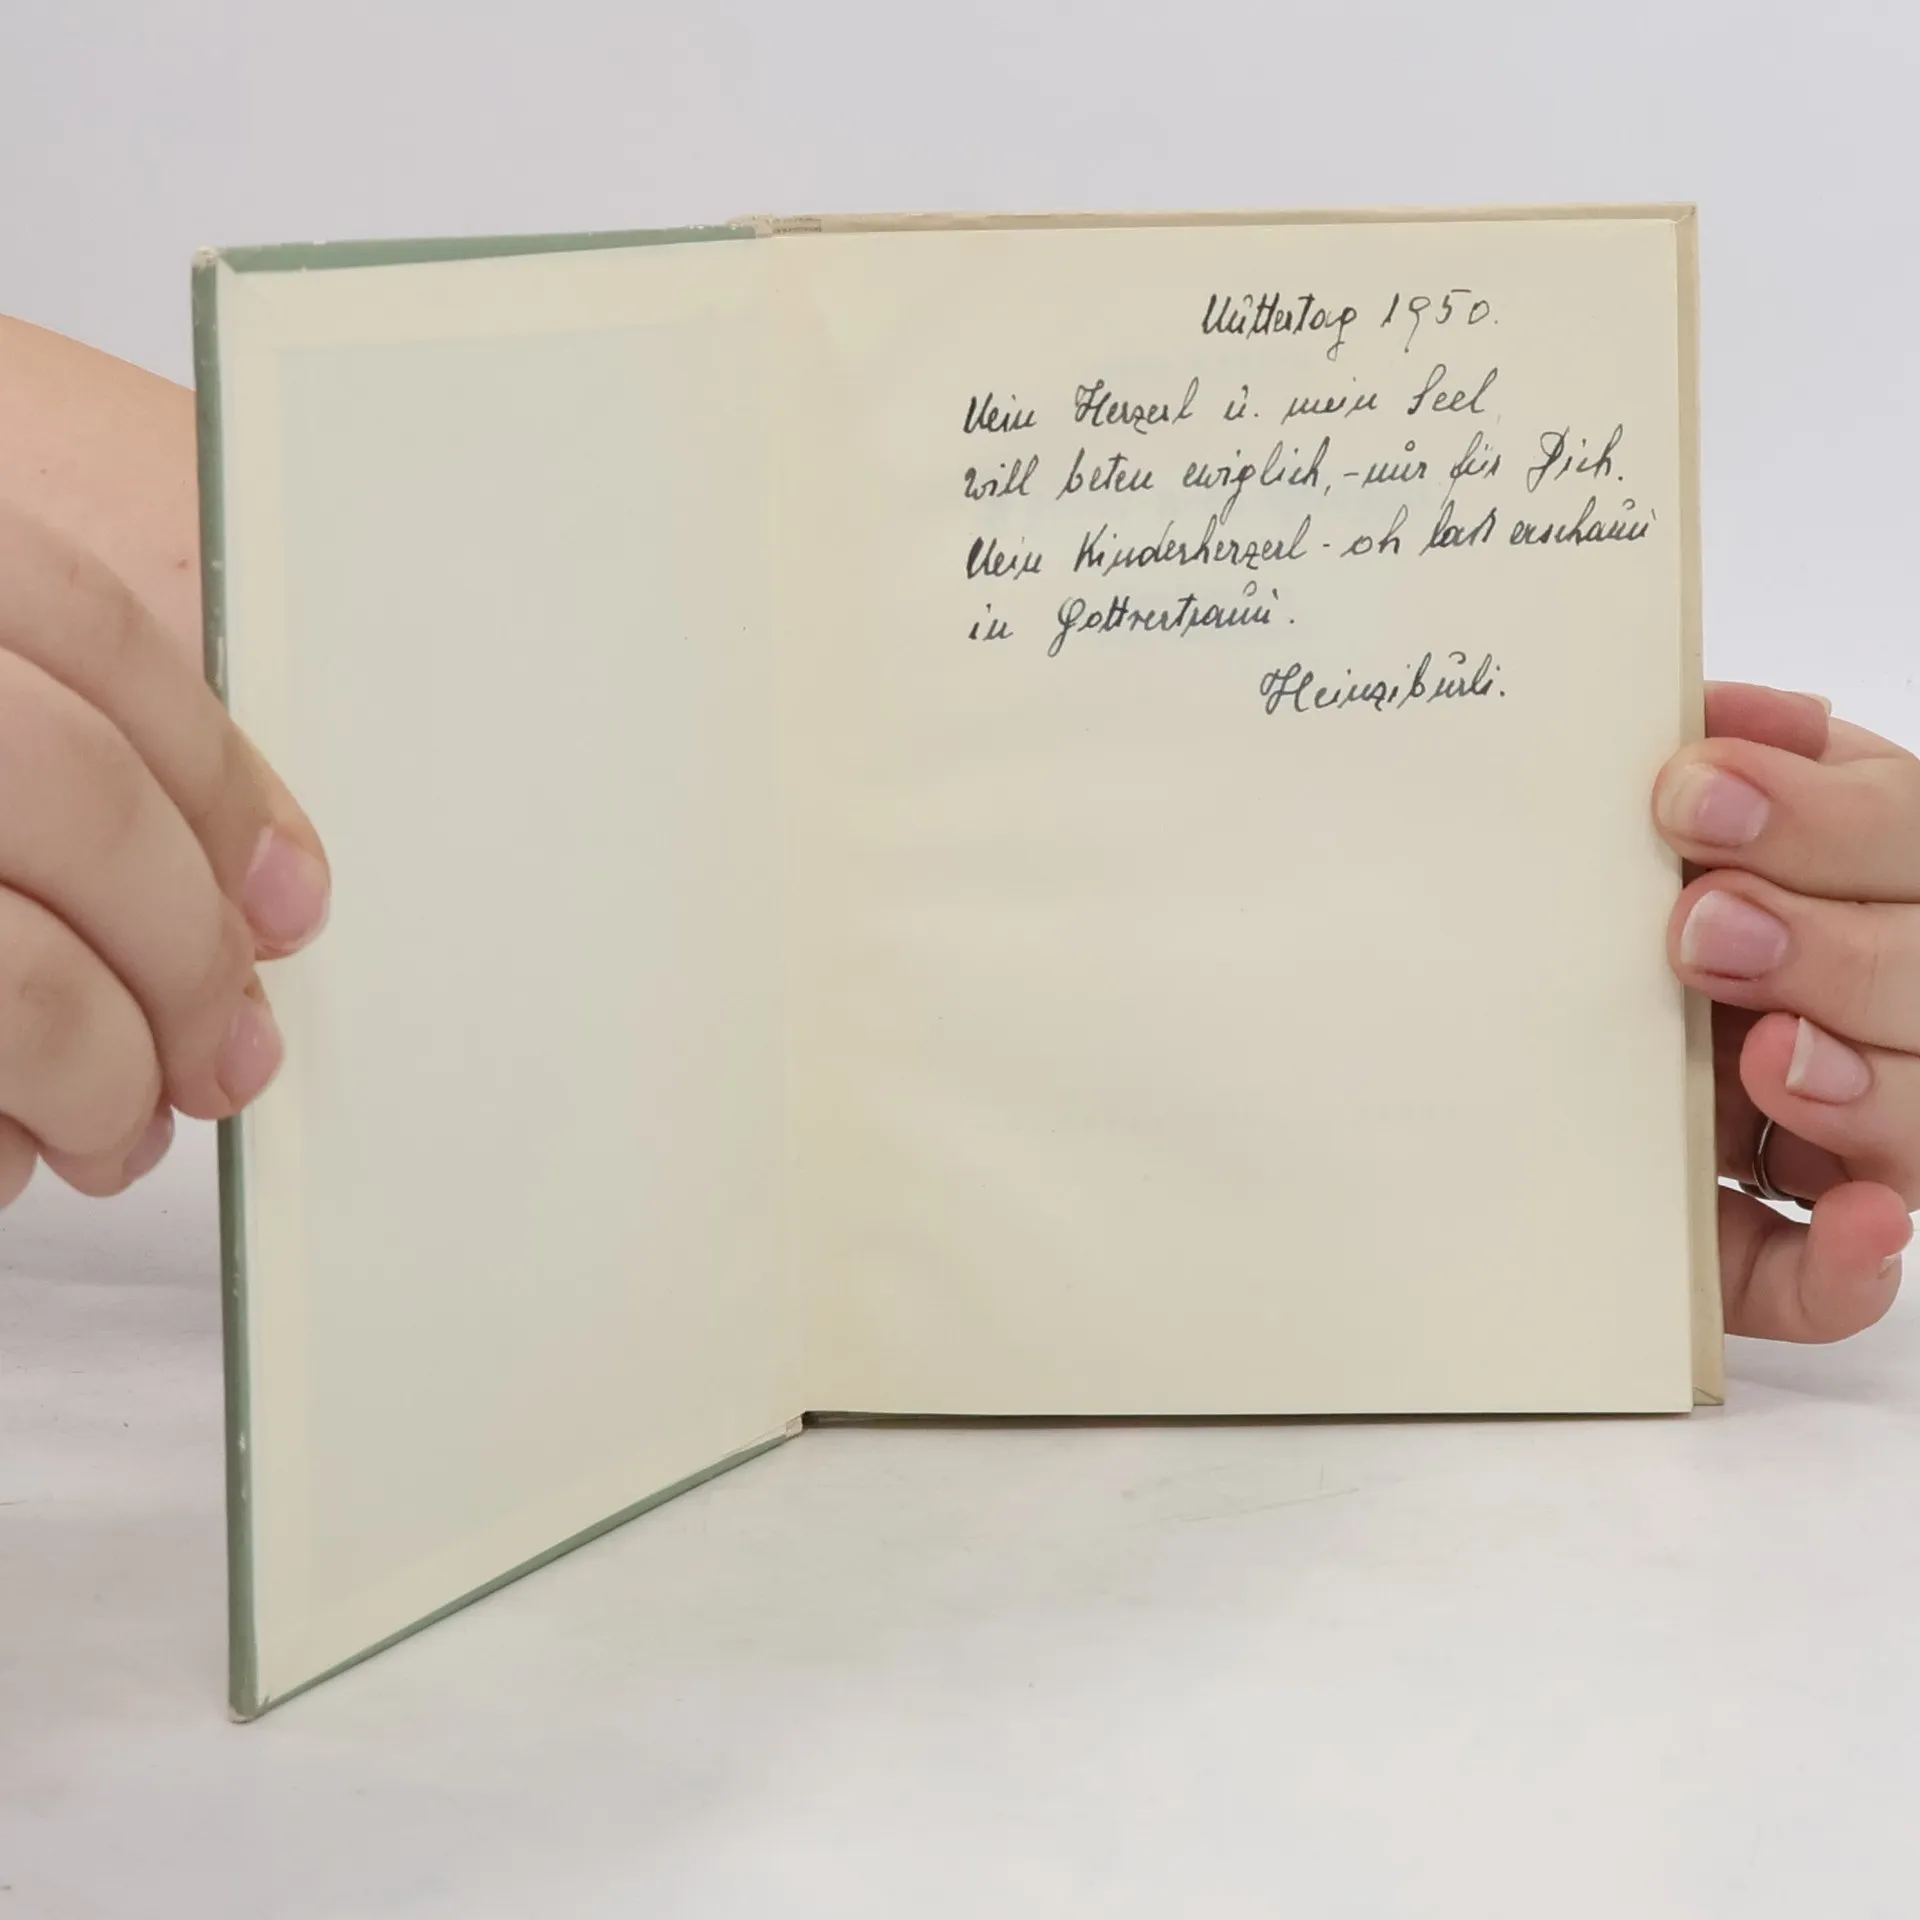 Muttertag 1950.
Mein Herzerl u. mein Seel
will beten ewiglich, - nur für Dich.
Mein Kinderherzerl - oh laß erschaun
in Gottvertraun.
Heinziburli.